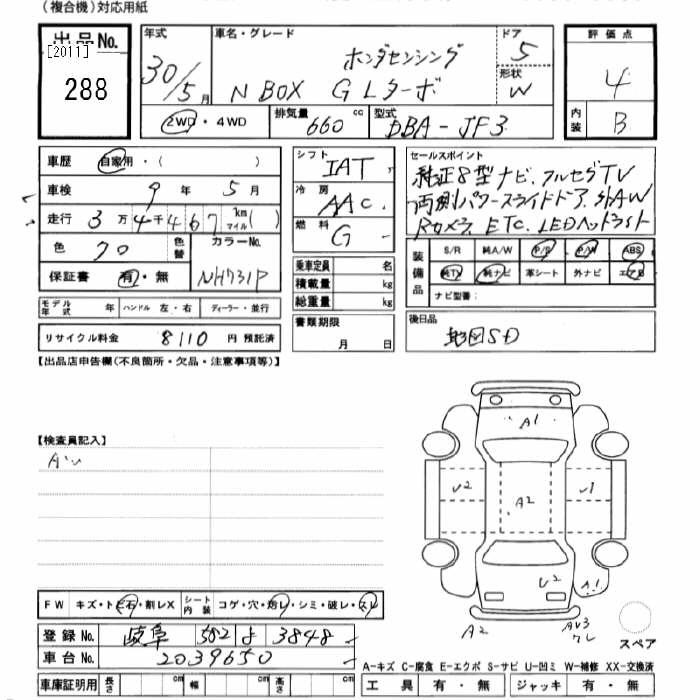 (複合機)対応用紙
出品No.
[2011]
288
年式
30/5月
車名・グレード
ホンダセンシング
N BOX G Lターボ
ドア
5
形状
W
評価点
4
内装
B
2WD・4WD
排気量
660 cc
型式
DBA-JF3
車歴 自家用・( )
車検 9年 5月
走行 3万4千467 km マイル( )
色 クロ 色替
カラーNo.
NH731P
保証書 有・無
モデル年式 年 ハンドル 左・右 ディーラー・並行
リサイクル料金 8110 円 預託済
シフト IAT
冷房 AAC
燃料 G
乗車定員 名
積載量 kg
総重量 kg
書類期限
月 日
セールスポイント
純正8型ナビ.フルセグTV
両側パワースライドドア.外AW
Rカメラ.ETC.LEDヘッドライト
装備品
S/R 純A/W P/S P/W ABS
純TV 純ナビ 革シート 外ナビ エアB
ナビ型番:
後日品
地図SD
【出品店申告欄(不良箇所・欠品・注意事項等)】
【検査員記入】
A1
U2
A2
U1
U2
A1
A2
スペア
FW キズ・ト゛石・割レX シート内装 コゲ・穴・汚レ・シミ・破レ・スレ
登録No. 岐阜 582 よ 3848
車台No. 2039650
車庫証明用 長さ cm 幅 cm 高さ cm
A-キズ C-腐食 E-エクボ S-サビ U-凹ミ W-補修 XX-交換済
工具 有・無 ジャッキ 有・無